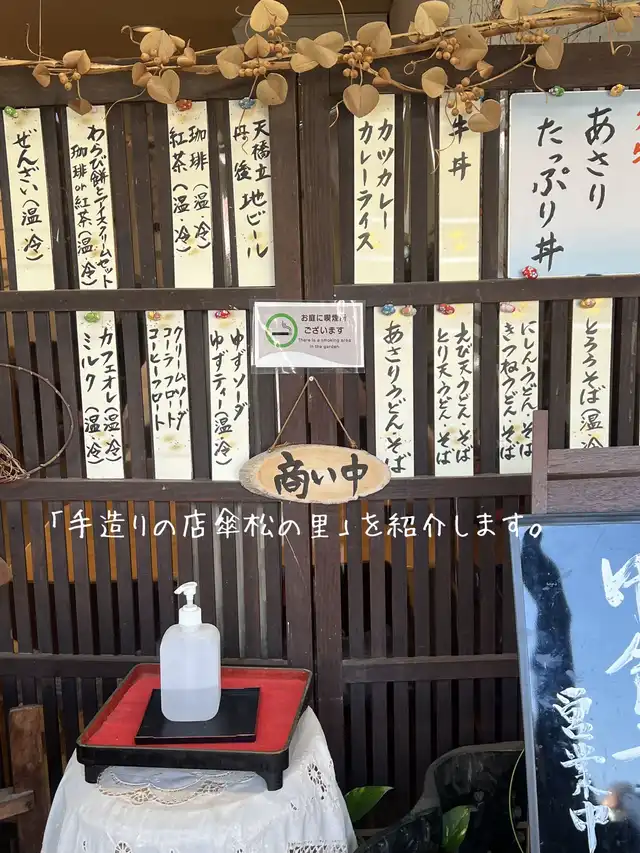 あさり
たっぷり丼
牛丼
カツカレー
カレーライス
天橋立地ビール
丹後
珈琲（温冷）
紅茶（温冷）
わらび餅とアイスクリームセット
珈琲or紅茶（温冷）
ぜんざい（温冷）
とろろそば（温冷）
にしんうどん、そば
きつねうどん そば
えび天うどん そば
とり天うどん そば
あさりうどん、そば
お庭に喫煙所
ございます
There is a smoking area
in the garden.
ゆずソーダ
ゆずティー（温冷）
クリームソーダ
コーラフロート
コーヒーフロート
カフェオレ（温冷）
ミルク（温冷）
商い中
「手造りの店傘松の里」を紹介します。
営業中